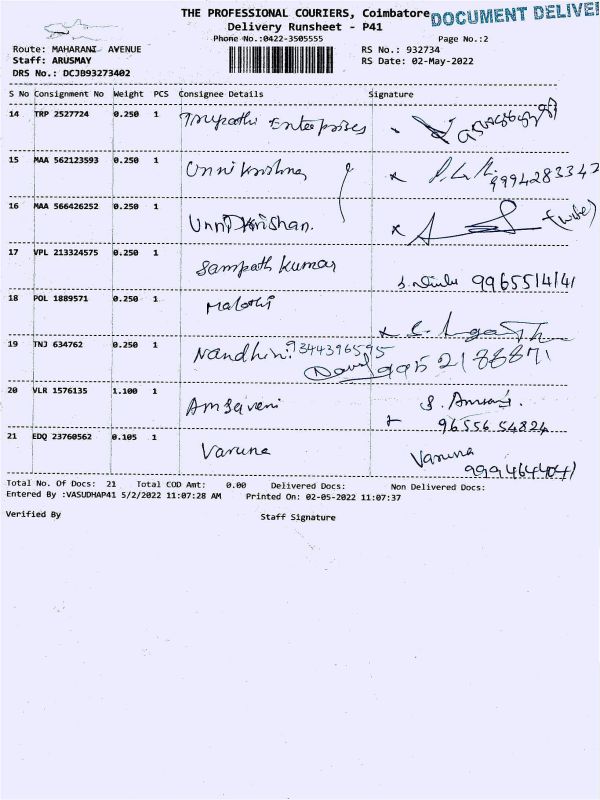 THE PROFESSIONAL COURIERS, Coimbatore
DOCUMENT DELIVE
Delivery Runsheet - P41
Phone No.:0422-3505555
Page No.:2
Route: MAHARANI AVENUE
RS No.: 932734
Staff: ARUSMAY
RS Date: 02-May-2022
DRS No.: DCJB93273402
S No Consignment No Weight PCS Consignee Details Signature
14 TRP 2527724 0.250 1 Tirupathi Enterprises
15 MAA 562123593 0.250 1 Unnikrishnan 9994283342
16 MAA 566426252 0.250 1 Unni Krishan. (wife)
17 VPL 213324575 0.250 1 Sampath Kumar 9965514141
18 POL 1889571 0.250 1 Malathi
19 TNJ 634762 0.250 1 Nandhini 9344396595
20 VLR 1576135 1.100 1 Amsaveni 96556 54824
21 EDQ 23760562 0.105 1 Varuna Varuna
Total No. Of Docs: 21 Total COD Amt: 0.00 Delivered Docs: Non Delivered Docs:
Entered By :VASUDHAP41 5/2/2022 11:07:28 AM Printed On: 02-05-2022 11:07:37
Verified By Staff Signature